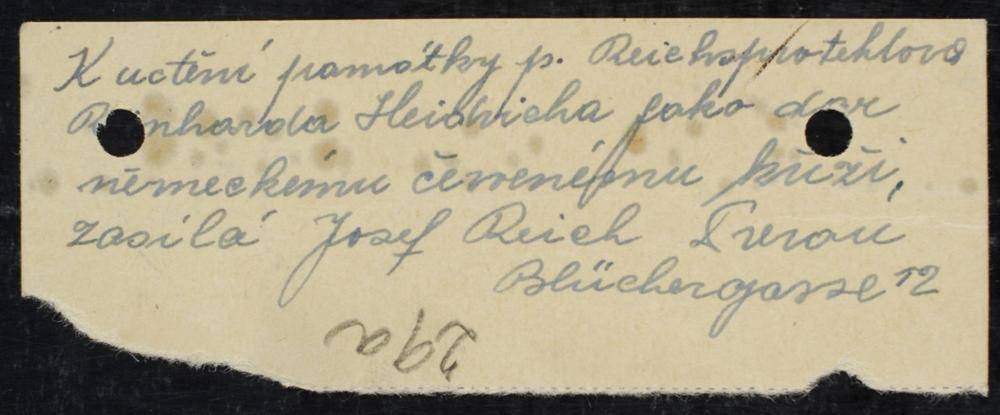 K uctění památky p. Reichsprotektora
Reinharda Heidricha jako dar
německému červenému kříži,
zasílá Josef Reich
Blüchergasse 12
29a